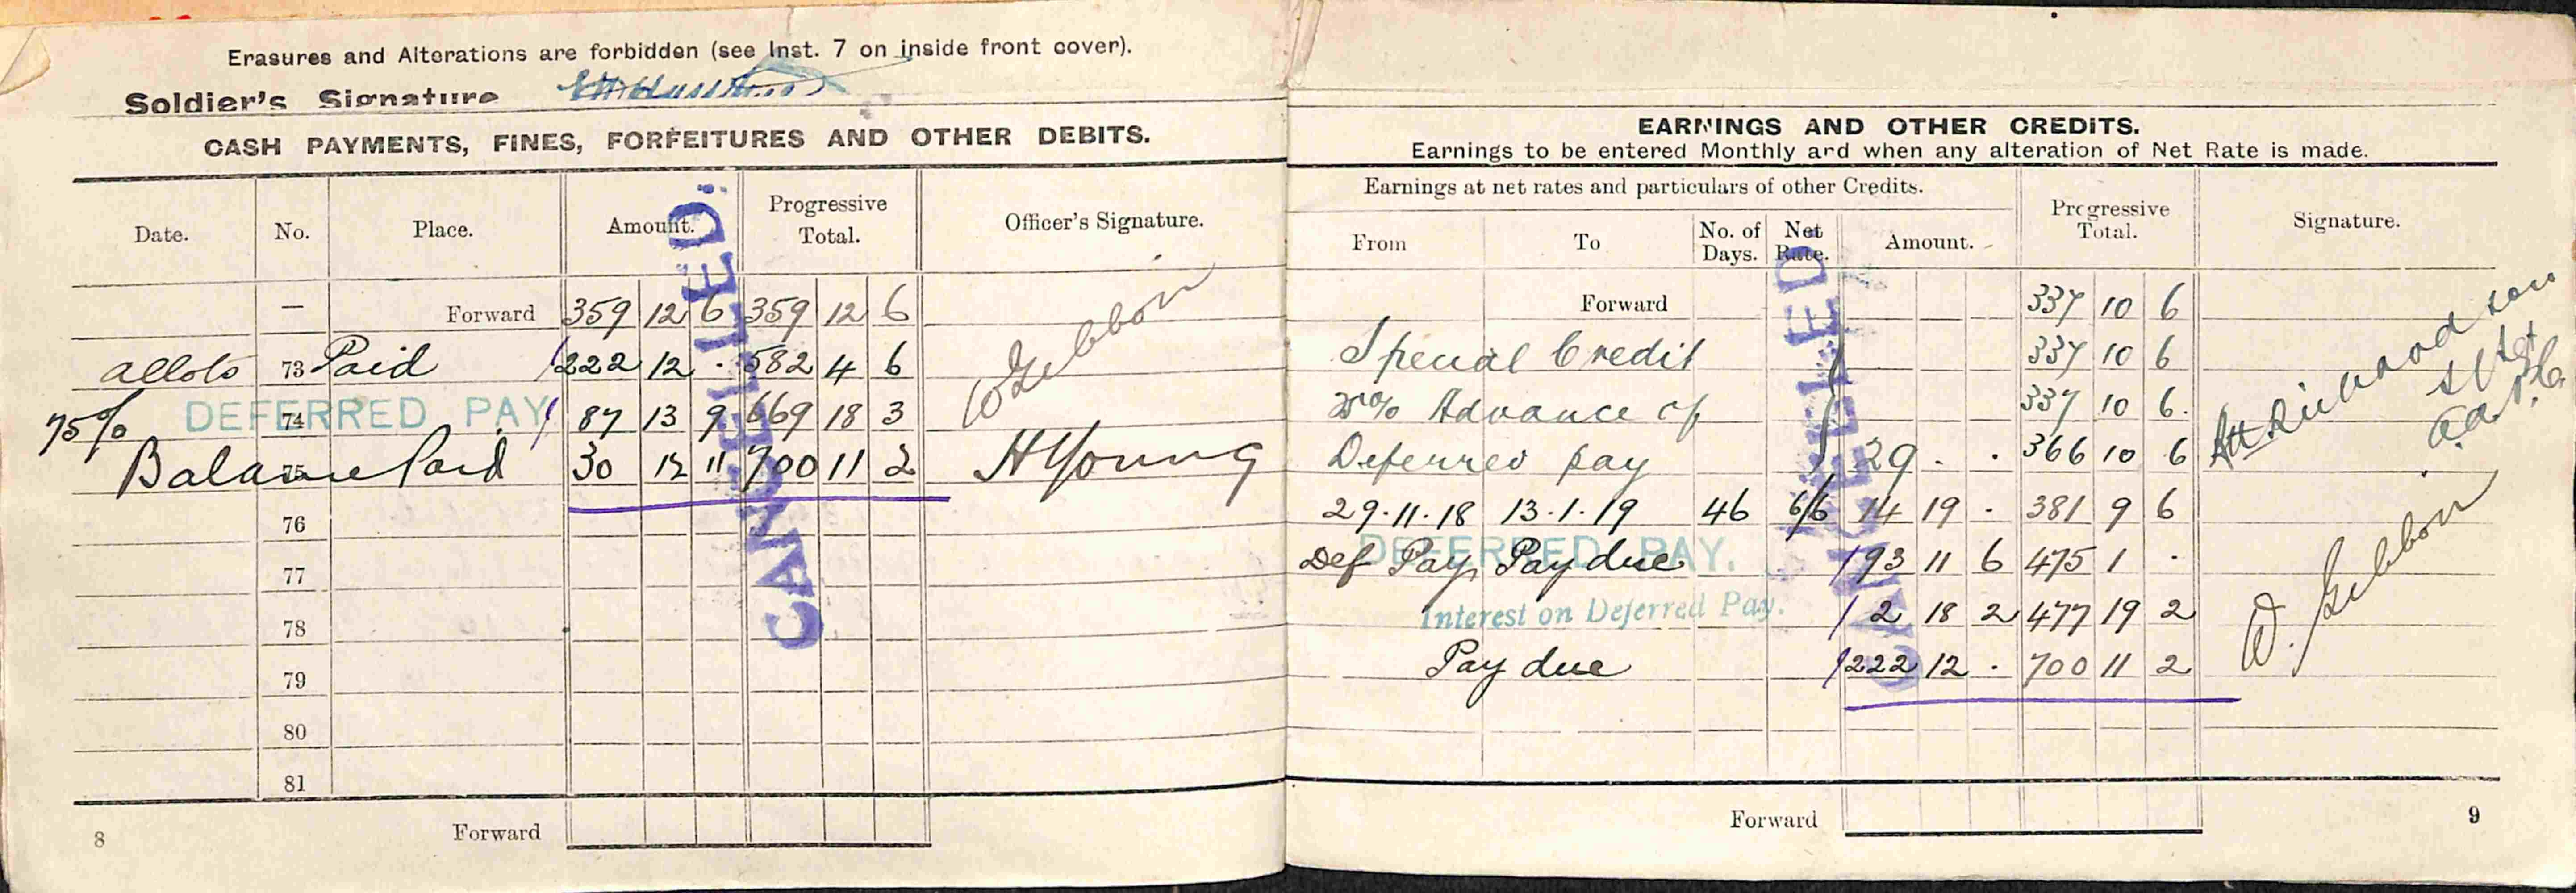 Erasures and Alterations are forbidden (see Inst. 7 on inside front cover).
Soldier's Signature
CASH PAYMENTS, FINES, FORFEITURES AND OTHER DEBITS.
Date. No. Place. Amount. Progressive Total. Officer's Signature.
— Forward 359 12 6 359 12 6
allots 73 Paid 222 12 · 582 4 6 Gibbon
75% DEFERRED PAY 74 87 13 9 669 18 3
Balance Paid 75 30 12 11 700 11 2 H Young
76
77
78
79
80
81
8 Forward
CANCELLED.
EARNINGS AND OTHER CREDITS.
Earnings to be entered Monthly and when any alteration of Net Rate is made.
Earnings at net rates and particulars of other Credits.
From To No. of Days. Net Rate. Amount. Progressive Total. Signature.
Forward 337 10 6
Special Credit 337 10 6
Advance of 337 10 6.
Deferred pay 29 . . 366 10 6
29.11.18 13.1.19 46 6/6 14 19 · 381 9 6
DEFERRED PAY.
Def Pay Pay due 93 11 6 475 1 ·
Interest on Deferred Pay. 2 18 2 477 19 2
Pay due 222 12 · 700 11 2
D. Gibbon
Forward 9
CANCELLED